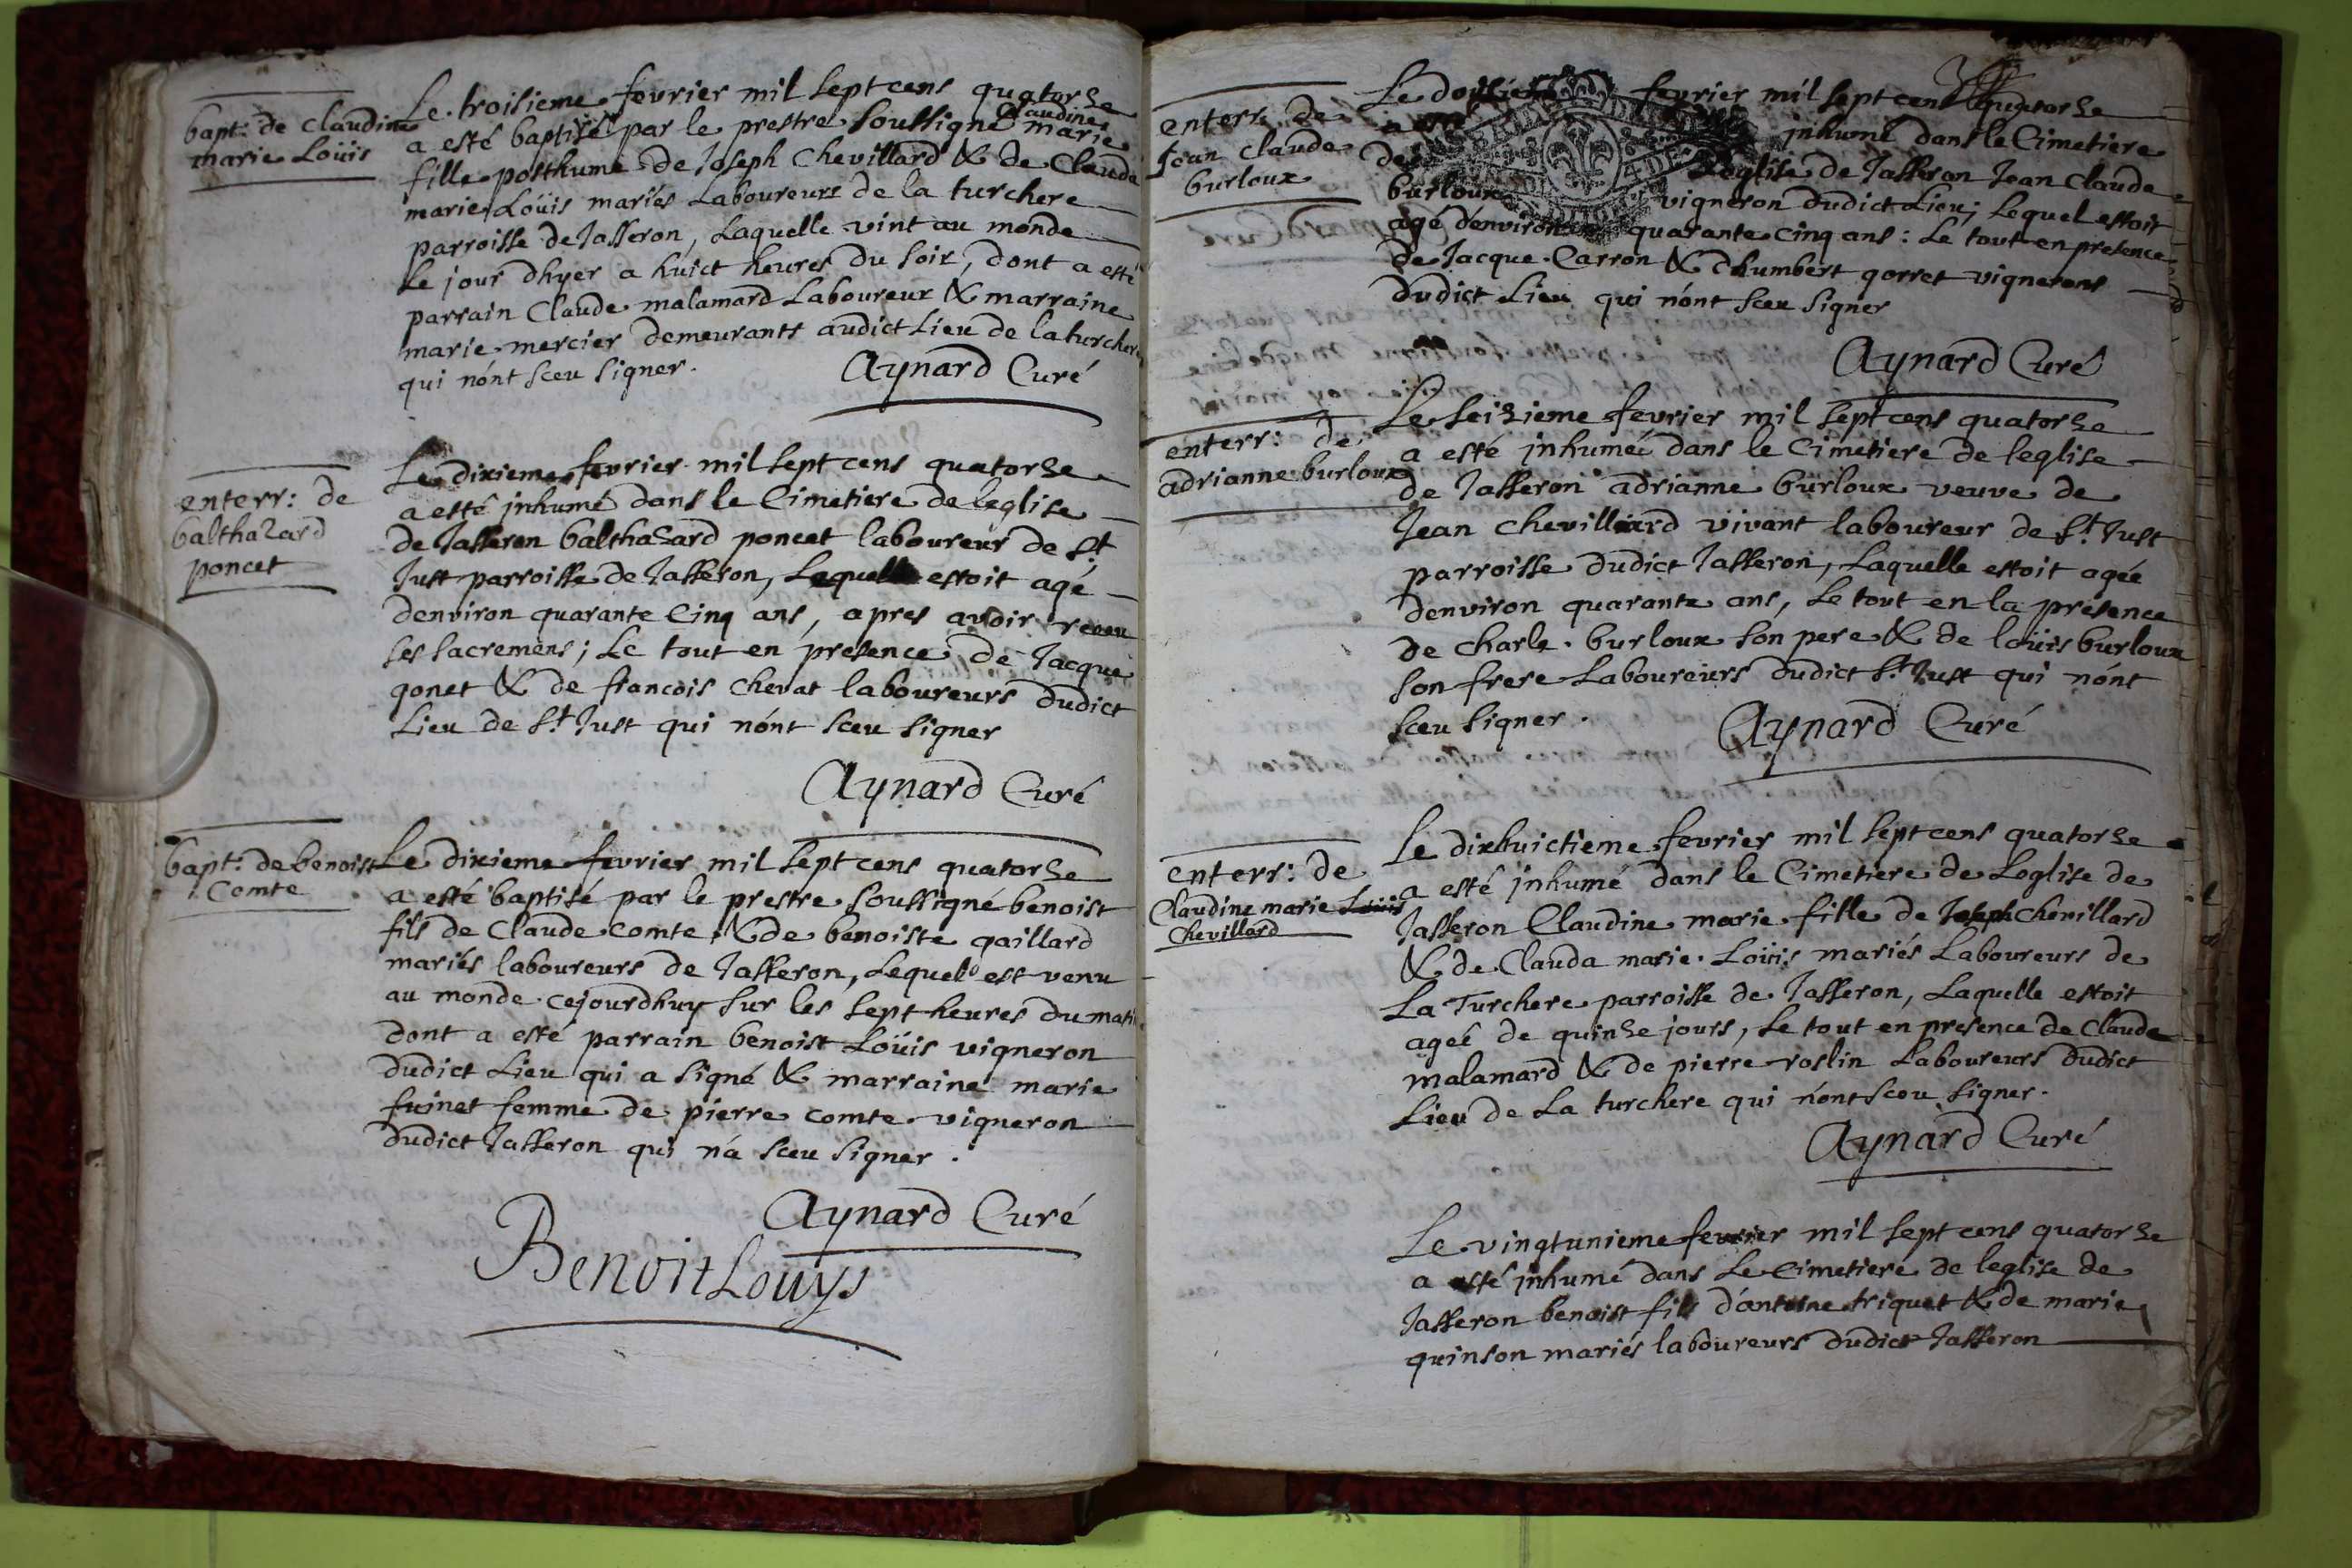 bapt: de claudine
marie Loüis
Le troisieme fevrier mil sept cens quatorze
a esté baptisé par le prestre soussigné Claudine marie
fille posthume de Joseph Chevillard & de Clauda
marie Loüis mariés Laboureurs de la turchere
parroisse de Jasseron, Laquelle vint au monde
le jour dhyer a huict heures du soir, dont a esté
parrain Claude malamard Laboureur & marraine
marie mercier demeurants audict Lieu de la turchere
qui n'ont sceu signer.
Aynard Curé
enterr: de
balthazard
poncet
Le dixieme fevrier mil sept cens quatorze
a esté inhumé dans le Cimetiere de leglise
de Jasseron balthazard poncet laboureur de St
Just parroisse de Jasseron, Lequel estoit agé
denviron quarante Cinq ans, apres avoir receu
ses sacremens; Le tout en presence de Jacque
gonet & de francois chevat laboureurs dudict
Lieu de St Just qui n'ont sceu signer
Aynard Curé
bapt: de benoist
Comte
Le dixieme fevrier mil sept cens quatorze
a esté baptisé par le prestre soussigné benoist
fils de Claude comte & de benoiste gaillard
mariés laboureurs de Jasseron, Lequel est venu
au monde cejourdhuy sur les sept heures du matin
dont a esté parrain benoist Loüis vigneron
dudict Lieu qui a signé & marraine marie
femme de pierre comte vigneron
dudict Jasseron qui n'a sceu signer.
Aynard Curé
Benoit Loüys
enterr: de
Jean claude
burloux
Le fevrier mil sept cens quatorze
a esté inhumé dans le Cimetiere
de Leglise de Jasseron Jean claude
burloux vigneron dudict Lieu; Lequel estoit
agé denviron quarante cinq ans: Le tout en presence
de Jacque Carron & dhumbert gorret vignerons
dudict Lieu qui n'ont sceu signer
Aynard Curé
enterr: de
adrianne burloux
Le seizieme fevrier mil sept cens quatorze
a esté inhumée dans le Cimetiere de leglise
de Jasseron adrianne burloux veuve de
Jean chevillard vivant laboureur de St Just
parroisse dudict Jasseron, Laquelle estoit agée
denviron quarante ans, Le tout en la presence
de charle burloux son pere & de loüis burloux
son frere Laboureurs dudict St Just qui n'ont
sceu signer.
Aynard Curé
enterr: de
Claudine marie Loüis
Chevillard
Le dixhuictieme fevrier mil sept cens quatorze
a esté inhumé dans le Cimetiere de Leglise de
Jasseron Claudine marie fille de Joseph Chevillard
& de Clauda marie Loüis mariés Laboureurs de
La Turchere parroisse de Jasseron, Laquelle estoit
ageé de quinze jours, Le tout en presence de Claude
malamard & de pierre roslin Laboureurs dudict
Lieu de La turchere qui n'ont sceu signer.
Aynard Curé
Le vingtunieme fevrier mil sept cens quatorze
a esté inhumé dans Le Cimetiere de leglise de
Jasseron benoist fils d'antoine triquet & de marie
quinson mariés laboureurs dudict Jasseron